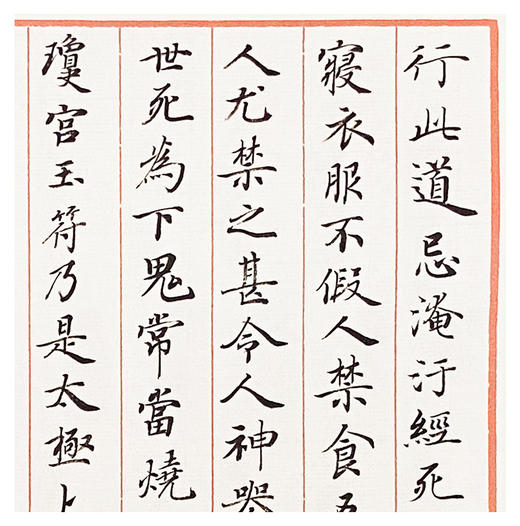 行此道忌淹汙經死
寢衣服不假人禁食
人尤禁之甚令人神
世死為下鬼常當燒
瓊宮玉符乃是太極上